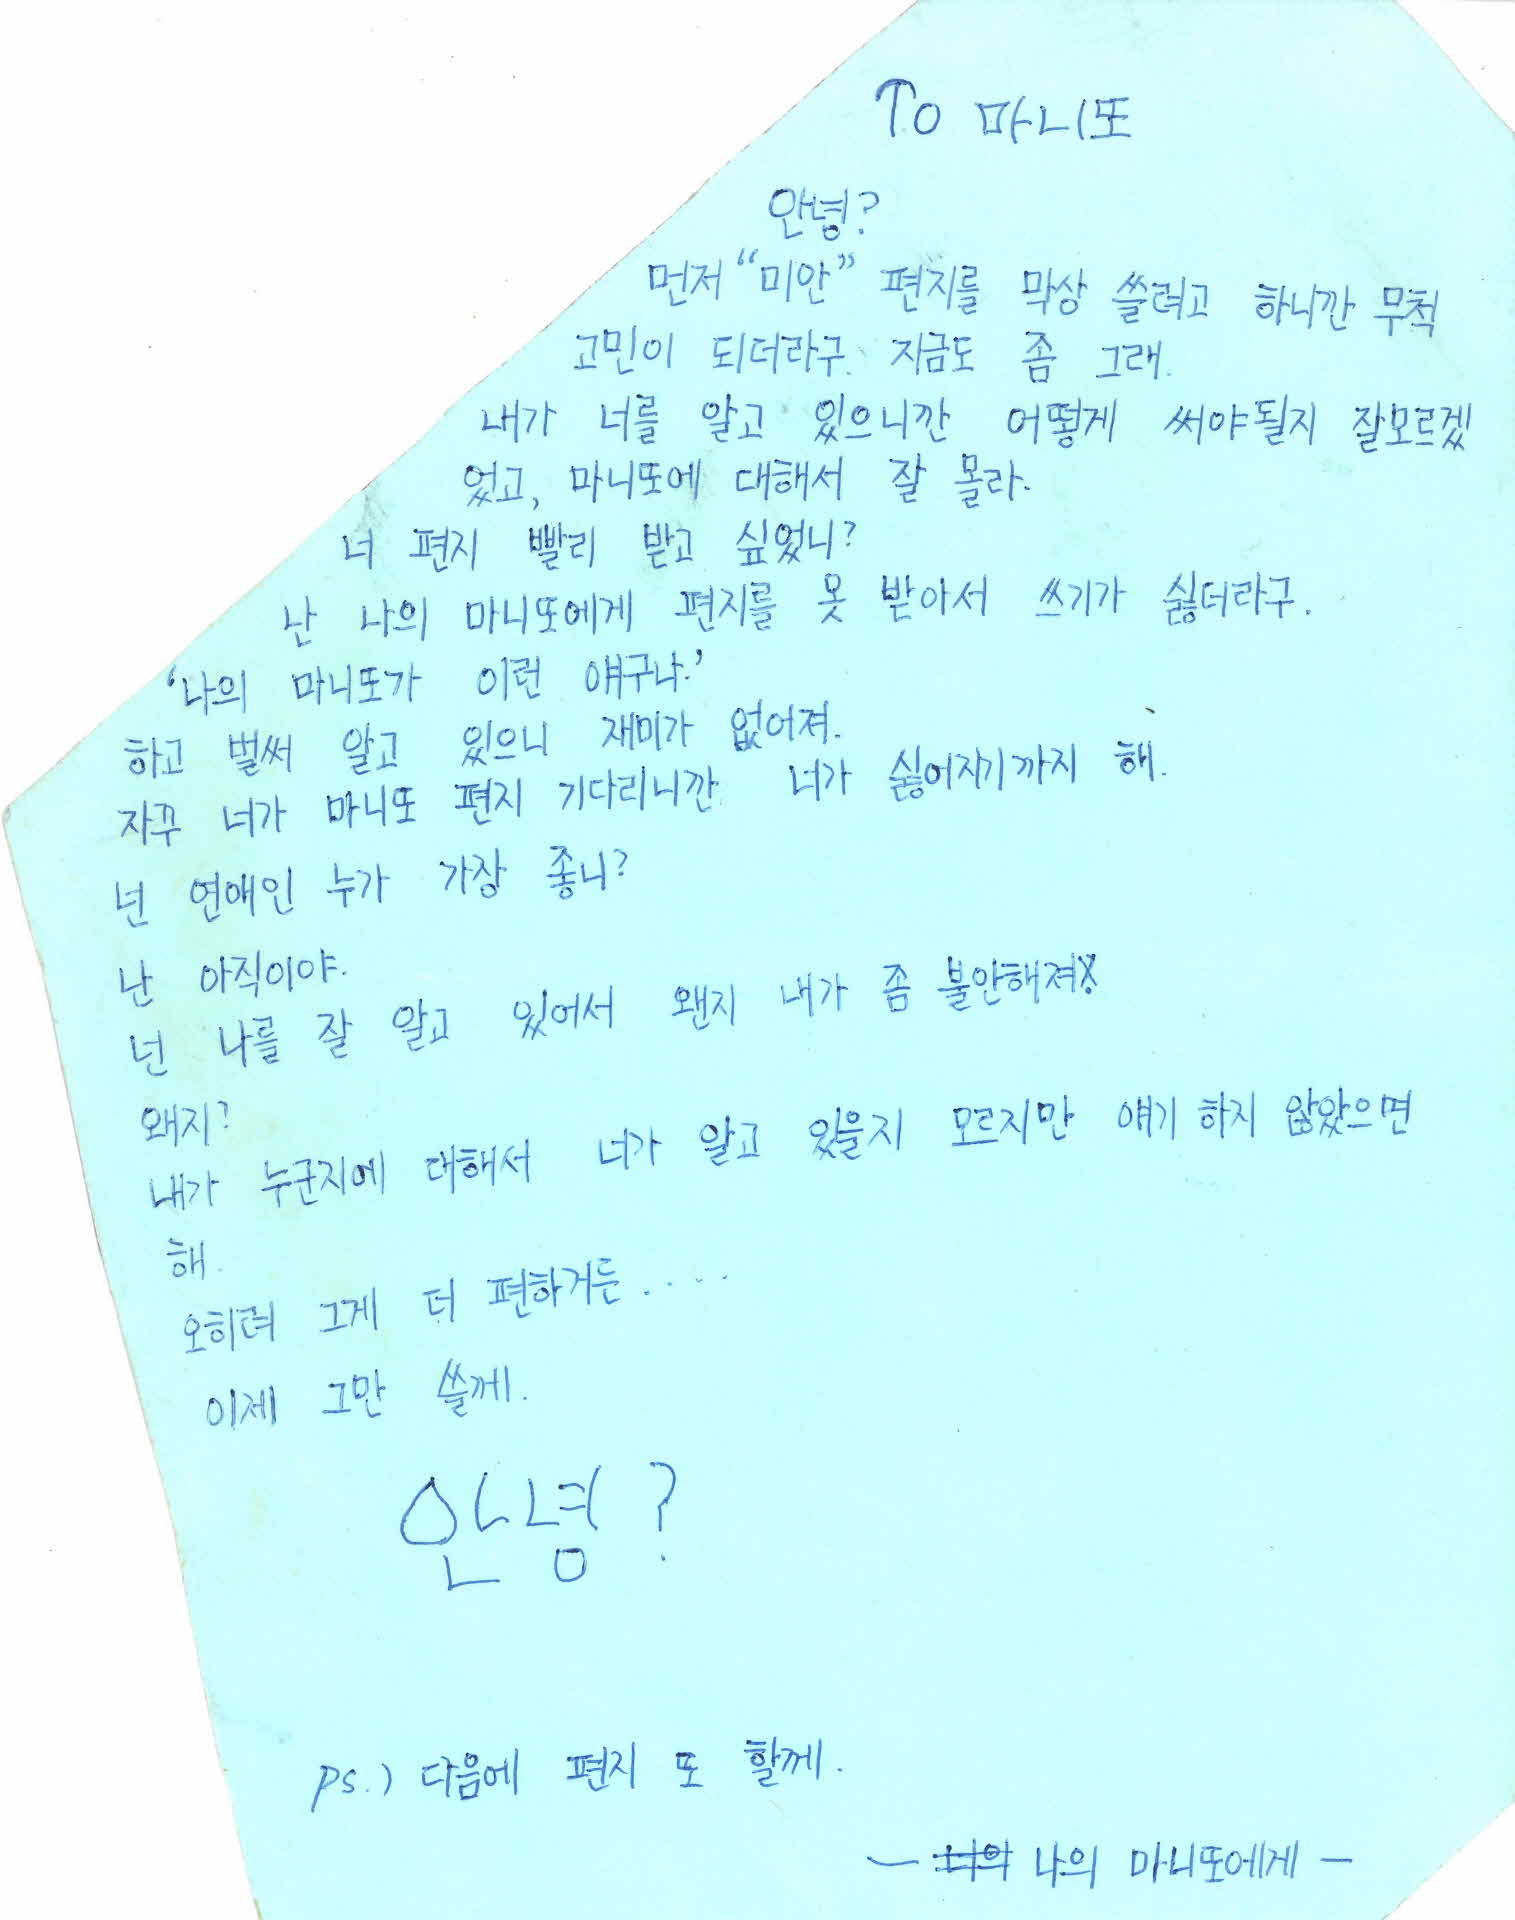 To 마니또
안녕?
먼저 "미안" 편지를 막상 쓸려고 하니깐 무척
고민이 되더라구. 지금도 좀 그래.
내가 너를 알고 있으니깐 어떻게 써야될지 잘모르겠
었고, 마니또에 대해서 잘 몰라.
너 편지 빨리 받고 싶었니?
난 나의 마니또에게 편지를 못 받아서 쓰기가 싫더라구.
'나의 마니또가 이런 얘구나.'
하고 벌써 알고 있으니 재미가 없어져.
자꾸 너가 마니또 편지 기다리니깐 너가 싫어지기까지 해.
넌 연애인 누가 가장 좋니?
난 아직이야.
넌 나를 잘 알고 있어서 왠지 내가 좀 불안해져
왜지?
내가 누군지에 대해서 너가 알고 있을지 모르지만 얘기 하지 않았으면
해.
오히려 그게 더 편하거든.....
이제 그만 쓸께.
안녕?
Ps.) 다음에 편지 또 할께.
— 너의 나의 마니또에게 —